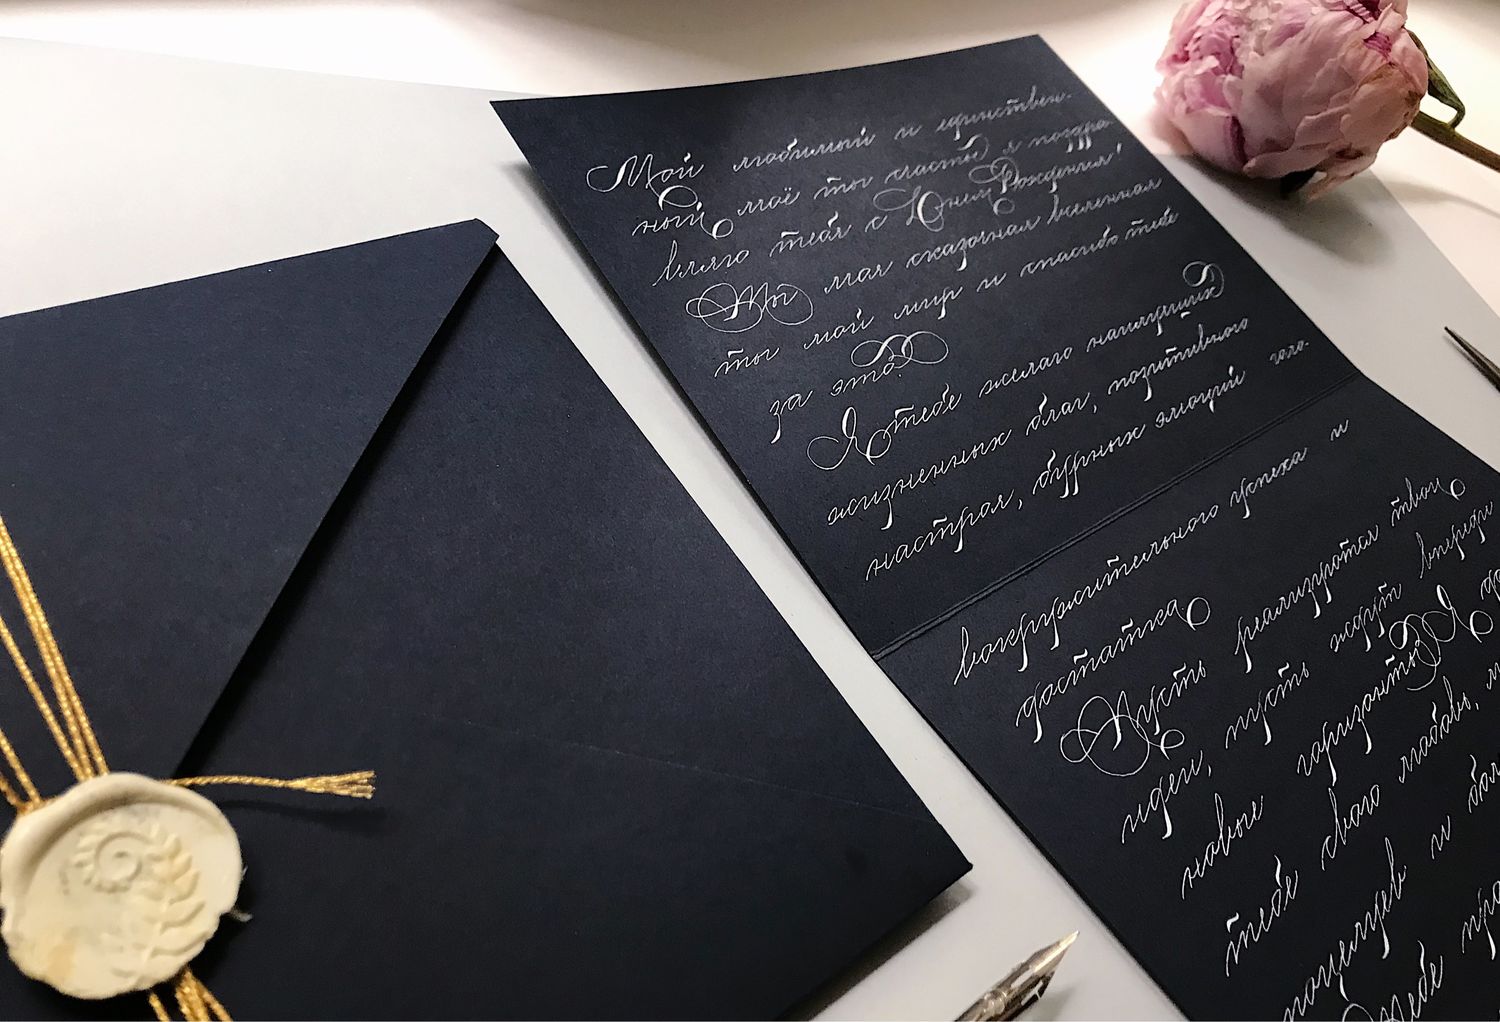 Мой любимый и единствен-
ный, моё ты счастье, я поздра-
вляю тебя с Днем Рождения!
Ты моя сказочная вселенная
ты мой мир и спасибо тебе
за это.
Я тебе желаю наилучших
жизненных благ, позитивного
настроя, бурных эмоций голо-
вокружительного успеха и
достатка
Пусть реализуются твои
идеи, пусть ждут впереди
новые горизонты. Я
тебе свою любовь,
поцелуев и
Тебе